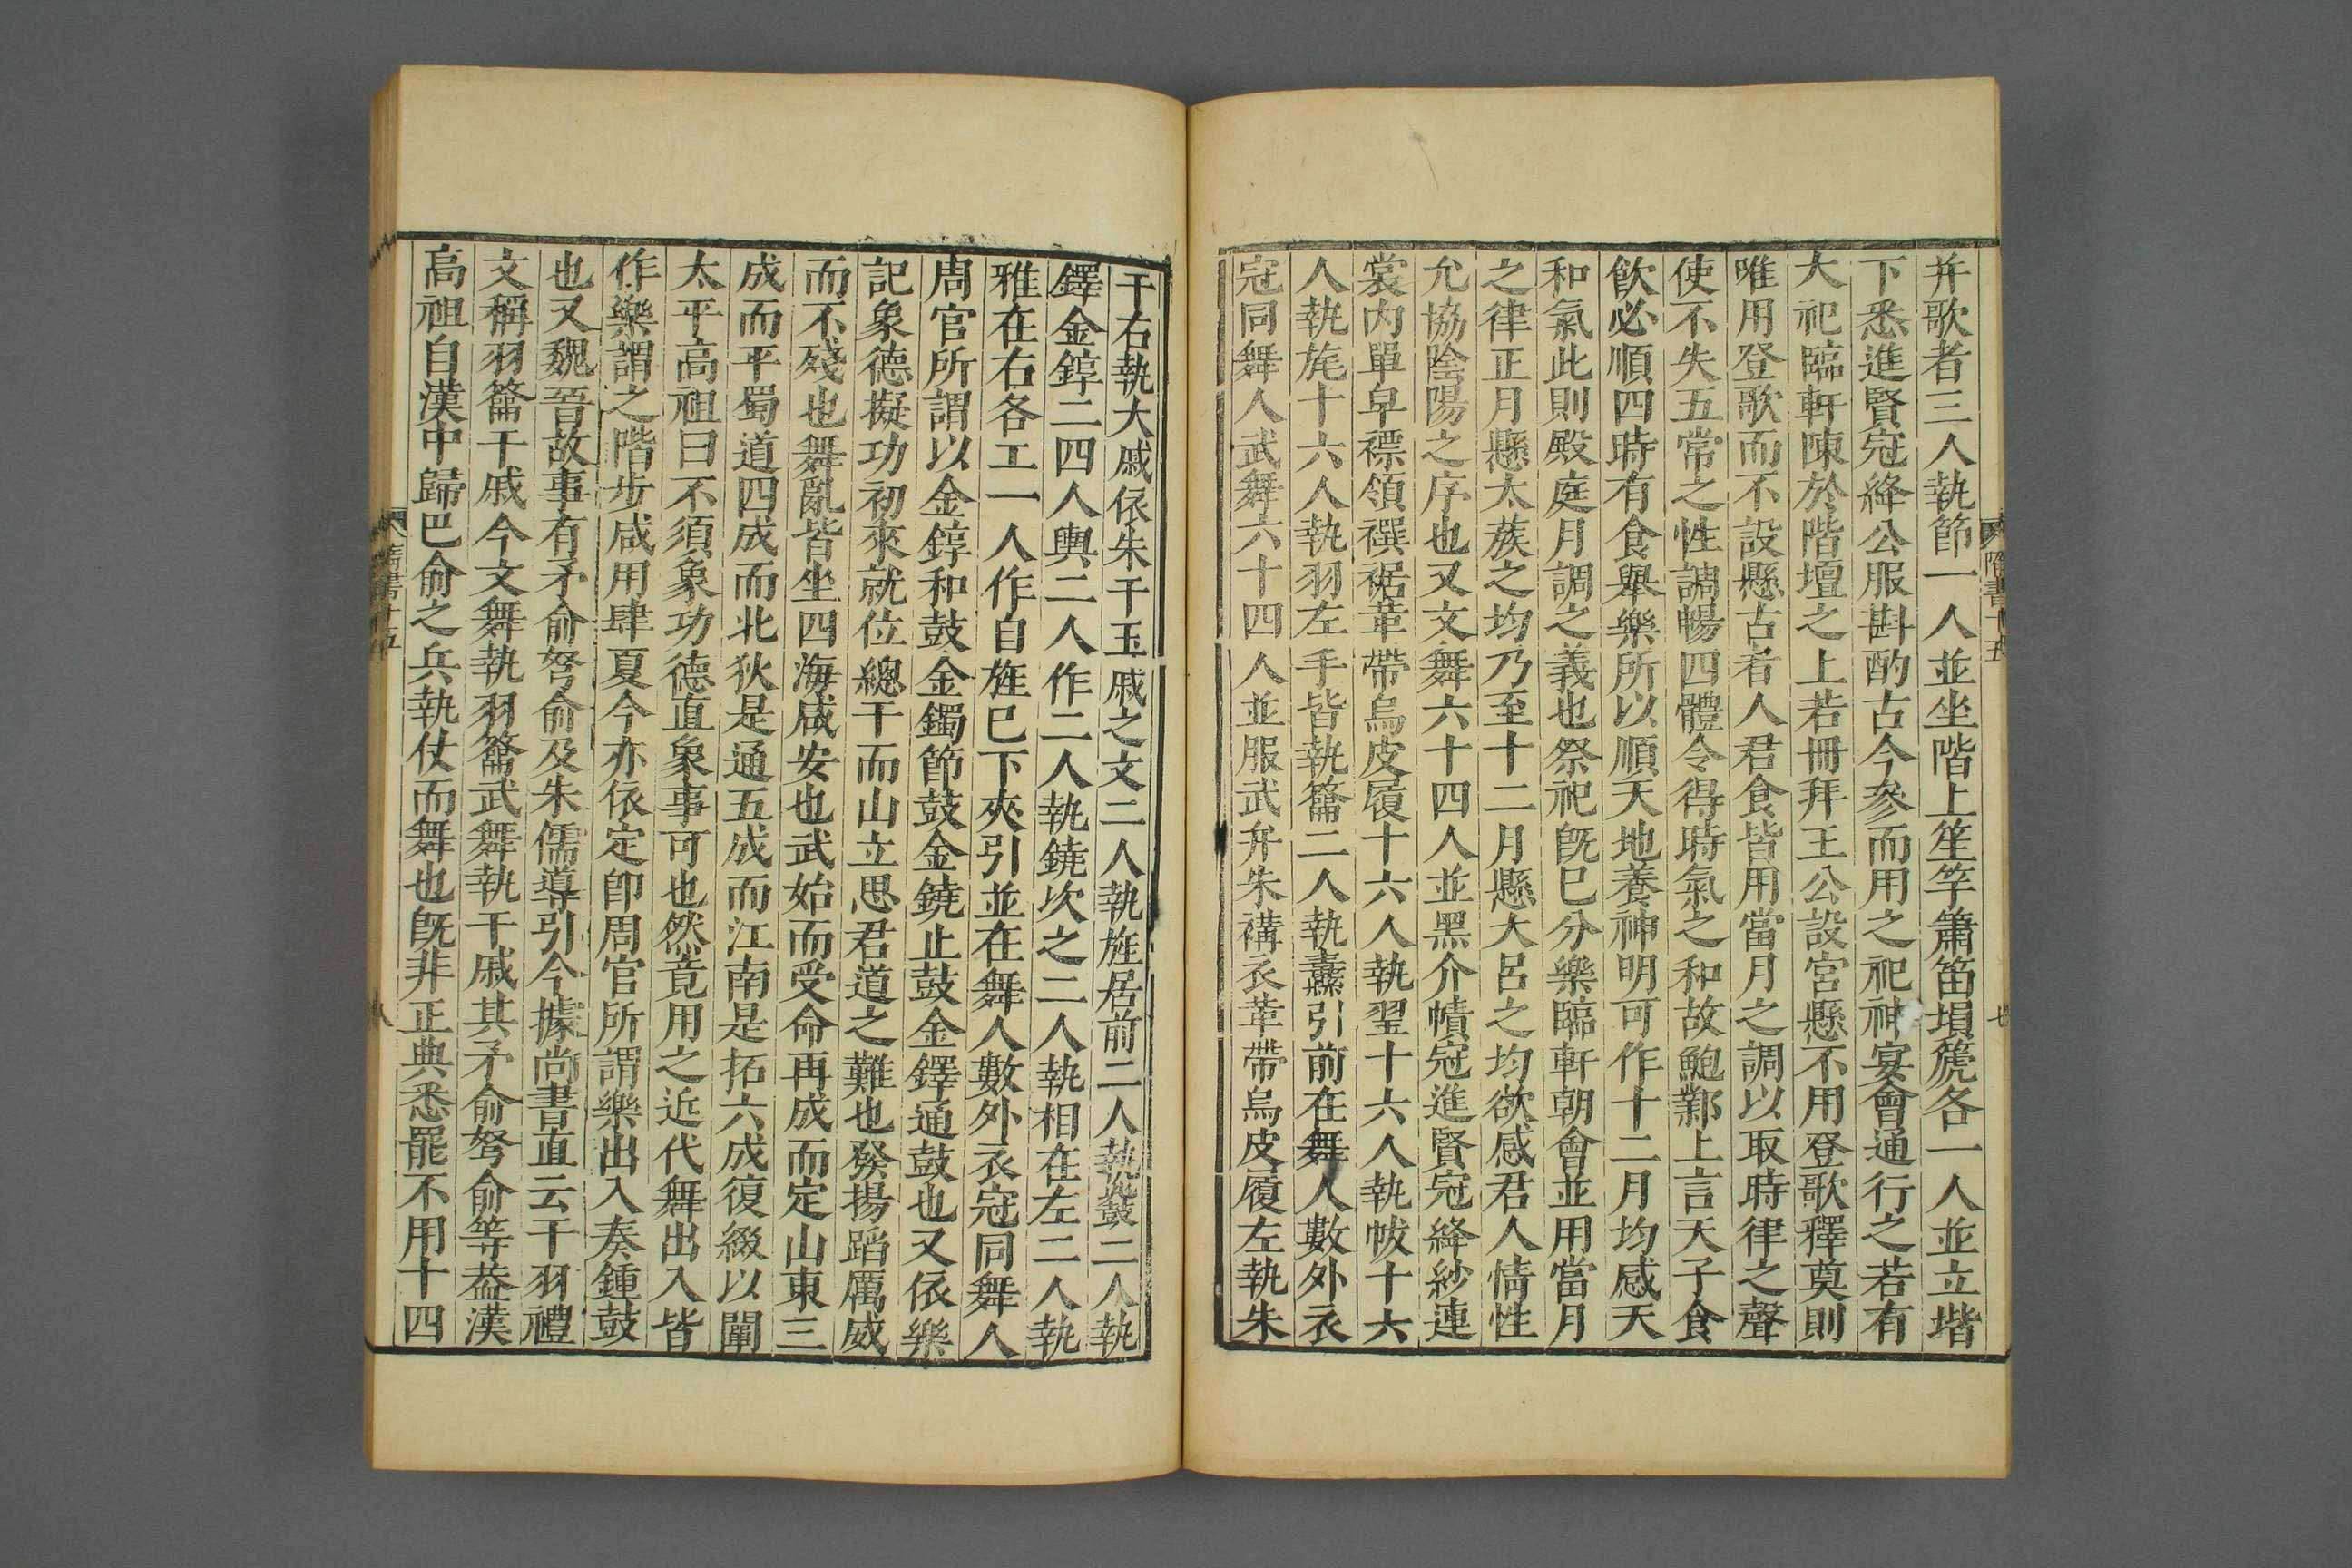 并歌者三人執節一人並坐階上笙竽簫笛塤箎各一人並立堦
下悉進賢冠絳公服斟酌古今參而用之祀神宴會通行之若有
大祀臨軒陳於階壇之上若冊拜王公設宮懸不用登歌釋奠則
唯用登歌而不設懸古者人君食皆用當月之調以取時律之聲
使不失五常之性調暢四體令得時氣之和故鮑鄴上言天子食
飲必順四時有食舉樂所以順天地養神明可作十二月均感天
和氣此則殿庭月調之義也祭祀旣巳分樂臨軒朝會並用當月
之律正月懸太蔟之均乃至十二月懸大呂之均欲感君人情性
允協陰陽之序也又文舞六十四人並黑介幘冠進賢冠絳紗連
裳內單皁褾領襈裾革帶烏皮履十六人執翟十六人執帗十六
人執旄十六人執羽左手皆執籥二人執纛引前在舞人數外衣
冠同舞人武舞六十四人並服武弁朱褠衣革帶烏皮履左執朱
干右執大戚依朱干玉戚之文二人執旌居前二人執鼗二人執
鐸金錞二四人輿二人作二人執鐃次之二人執相在左二人執
雅在右各工一人作自旌巳下夾引並在舞人數外衣冠同舞人
周官所謂以金錞和鼓金鐲節鼓金鐃止鼓金鐸通鼓也又依樂
記象德擬功初來就位總干而山立思君道之難也發揚蹈厲威
而不殘也舞亂皆坐四海咸安也武始而受命再成而定山東三
成而平蜀道四成而北狄是通五成而江南是拓六成復綴以闡
太平高祖曰不須象功德直象事可也然竟用之近代舞出入皆
作樂謂之階步咸用肆夏今亦依定卽周官所謂樂出入奏鍾鼓
也又魏晉故事有矛俞弩俞及朱儒導引今據尚書直云干羽禮
文稱羽籥干戚今文舞執羽籥武舞執干戚其矛俞弩俞等葢漢
高祖自漢中歸巴俞之兵執仗而舞也旣非正典悉罷不用十四
隋書十五
七
隋書十五
八